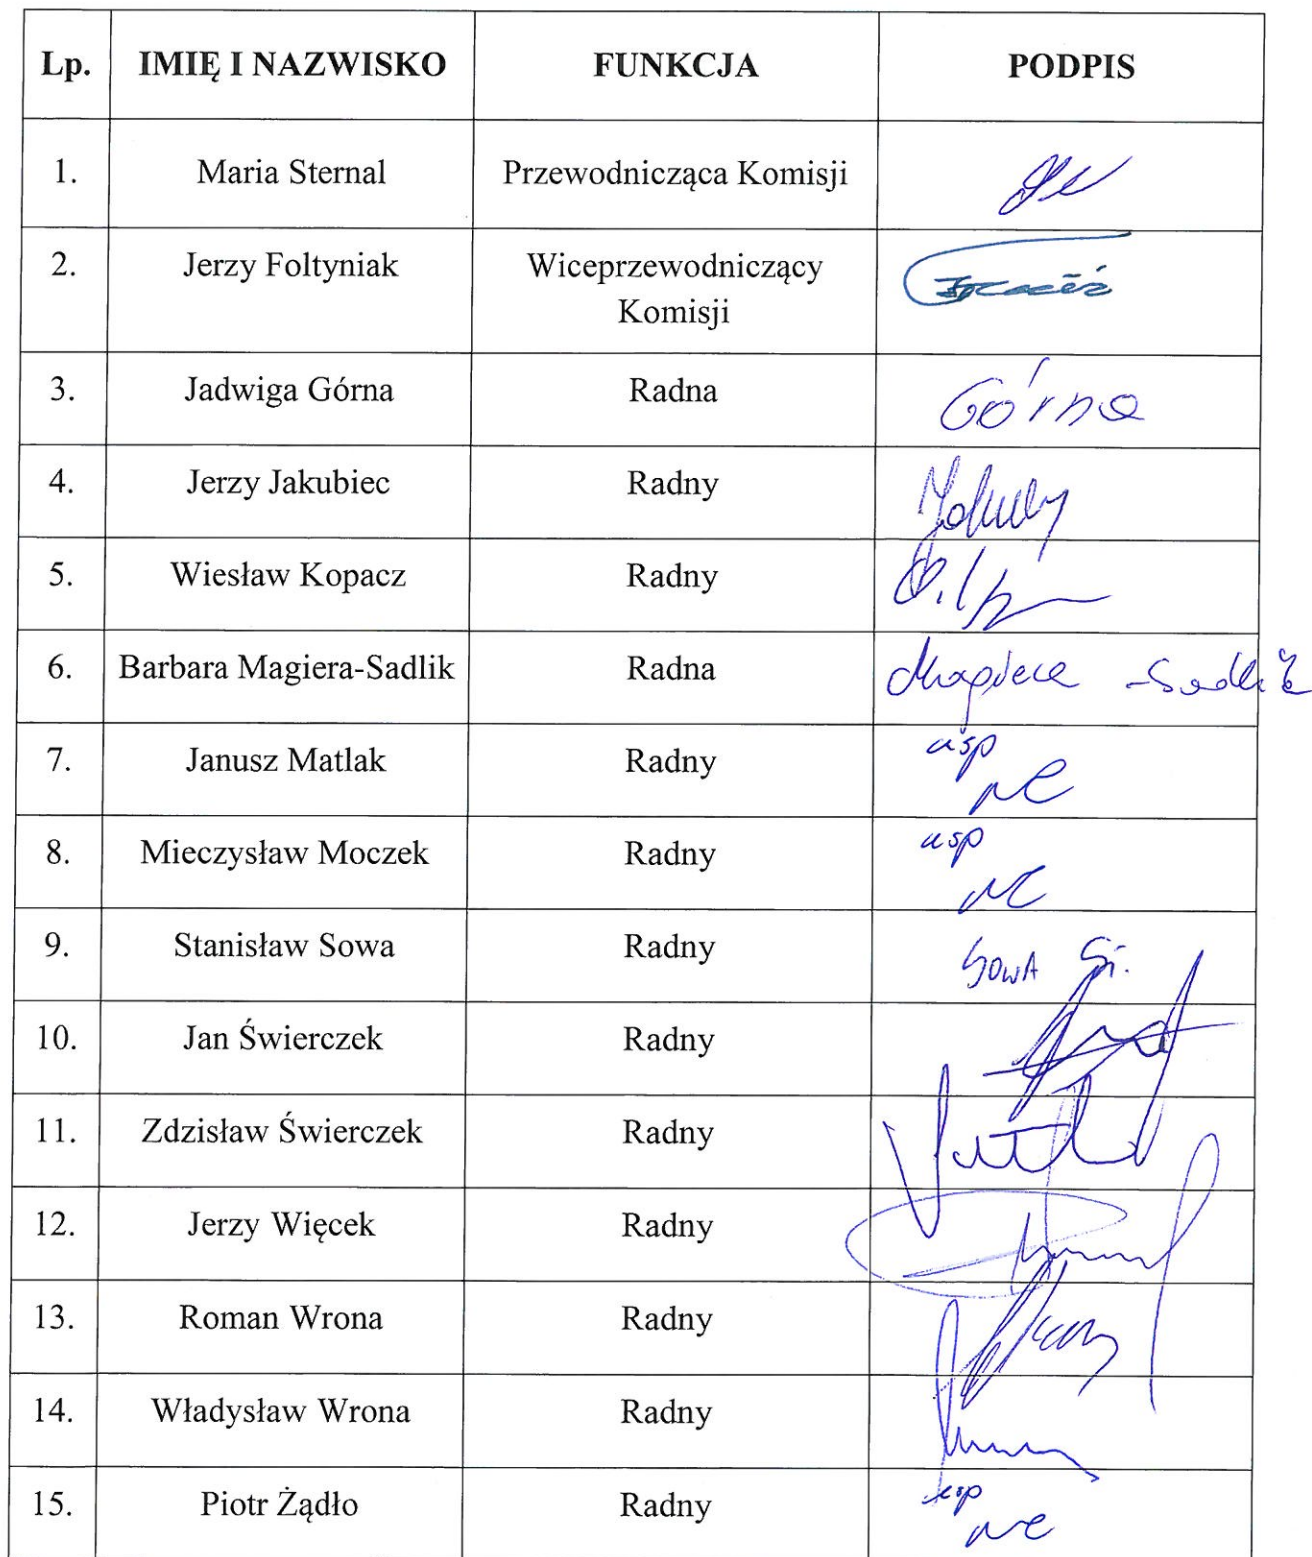 Lp. IMIĘ I NAZWISKO FUNKCJA PODPIS
1. Maria Sternal Przewodnicząca Komisji
2. Jerzy Foltyniak Wiceprzewodniczący
Komisji
3. Jadwiga Górna Radna Górna
4. Jerzy Jakubiec Radny
5. Wiesław Kopacz Radny
6. Barbara Magiera-Sadlik Radna Magiera-Sadlik
7. Janusz Matlak Radny usp
8. Mieczysław Moczek Radny usp
9. Stanisław Sowa Radny SOWA St.
10. Jan Świerczek Radny
11. Zdzisław Świerczek Radny
12. Jerzy Więcek Radny
13. Roman Wrona Radny
14. Władysław Wrona Radny
15. Piotr Żądło Radny usp